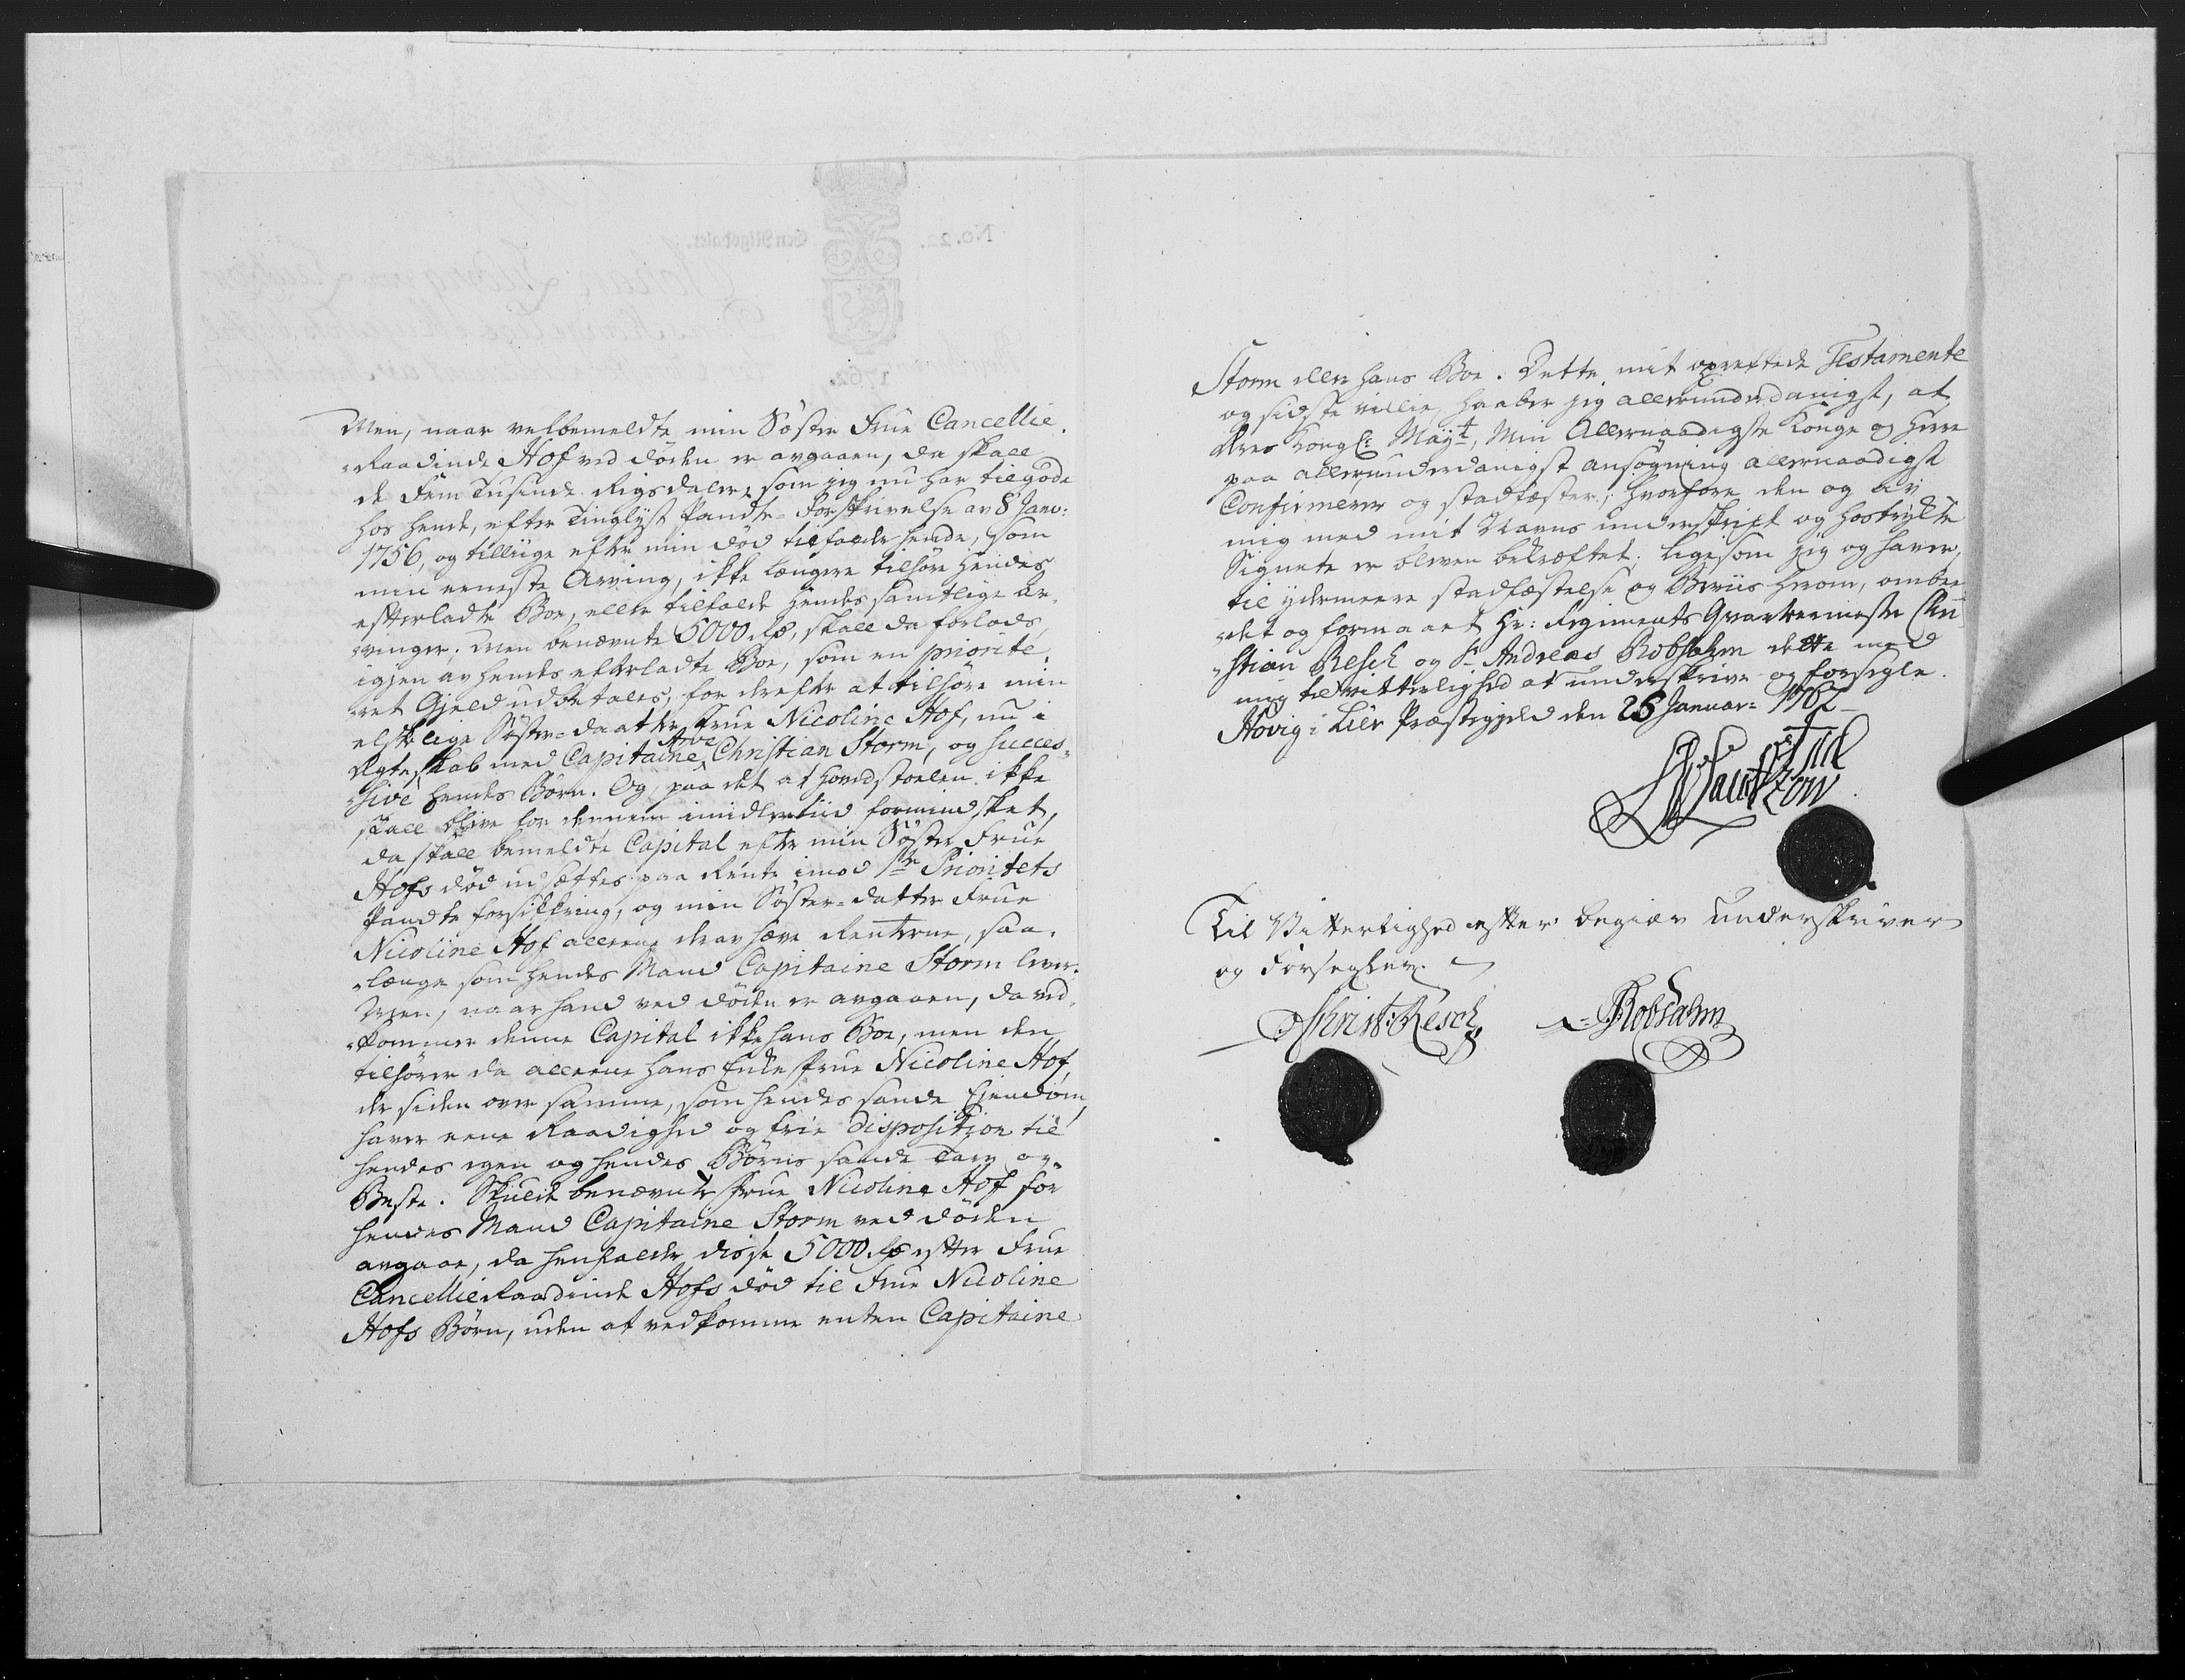 Men, naar velbemeldte min Søster Frue Cancellie-
-Raadinde Hof ved døden er avgaaen, da skall
de Fem Tusinde Rigsdaler, som jeg nu har tilgode
hos hende, efter Tinglyst Pandte-Forskrivelse av 8 Janv:
1756, og tilliige efter min død tilfalder hende, som
min eeneste Arving, ikke længere tilhøre hendes
efterladte Boe, eller tilfalde hendes samtlige Ar-
-vinger; Men benævnte 5000 Rd, skall da forlods,
igjen av hendes efterladte Boe, som en priorite-
-ret Gjeld udbetales, for derefter at tilhøre min
elskelige Søster-daatter Frue Nicoline Hof, nu i
Ægteskab med Capitaine Arve Christian Storm, og succes-
-sive hendes Børn. Og, paa det at hovedstoelen ikke
skall blive for dennem imidlertiid formindsket,
da skall bemeldte Capital efter min Søster Frue
Hofs død udsættes paa Rente imod 1te Prioritets
Pandte forsikkring, og min Søster-datter Frue
Nicoline Hof alleene derav hæve Renterne, saa-
-længe som hendes Mand Capitaine Storm lever.
Men, naar hand ved døden er avgaaen, da ved-
-kommer denne Capital ikke hans Boe, men den
tilhører da alleene hans Enke Frue Nicoline Hof,
der siden over samme, som hendes sande Eiendom,
haver eene Raadighed og frie Disposition til
hendes egen og hendes Børns sande Tarv og
Beste. Skulde benævnte Frue Nicoline Hof før
hendes Mand Capitaine Storm ved døden
avgaae, da henfalder disse 5000 Rd efter Frue
Cancellie Raadinde Hofs død til Frue Nicoline
Hofs Børn, uden at vedkomme enten Capitaine
Storm eller hans Boe. Dette mit oprettede Testamente
og sidste villie, haaber jeg allerunderdanigst, at
Deres Kongl: Mayt, Min Allernaadigste Konge og Herre
paa allerunderdanigst ansøgning allernaadigst
Confirmerer og stadfæster; hvorfore den og av
mig med mit Navns underskrift og hostrykte
Signete er bleven bekræftet; ligesom jeg og haver,
til ydermeere stadfæstelse og Beviis herom, ombe-
-det og formaaet Hr: Regiments Qvarteermester Chri-
-stian Resch og Sr Andreas Robsahm dette med
mig til vitterlighed at underskrive og forsegle.
Hovig i Lier Præstegjeld den 25 Januar: 1762
Til Vitterlighed efter begiær underskriver
og Forsegler.
Christ: Resch
A: Robsahm
No. 22.
1762.